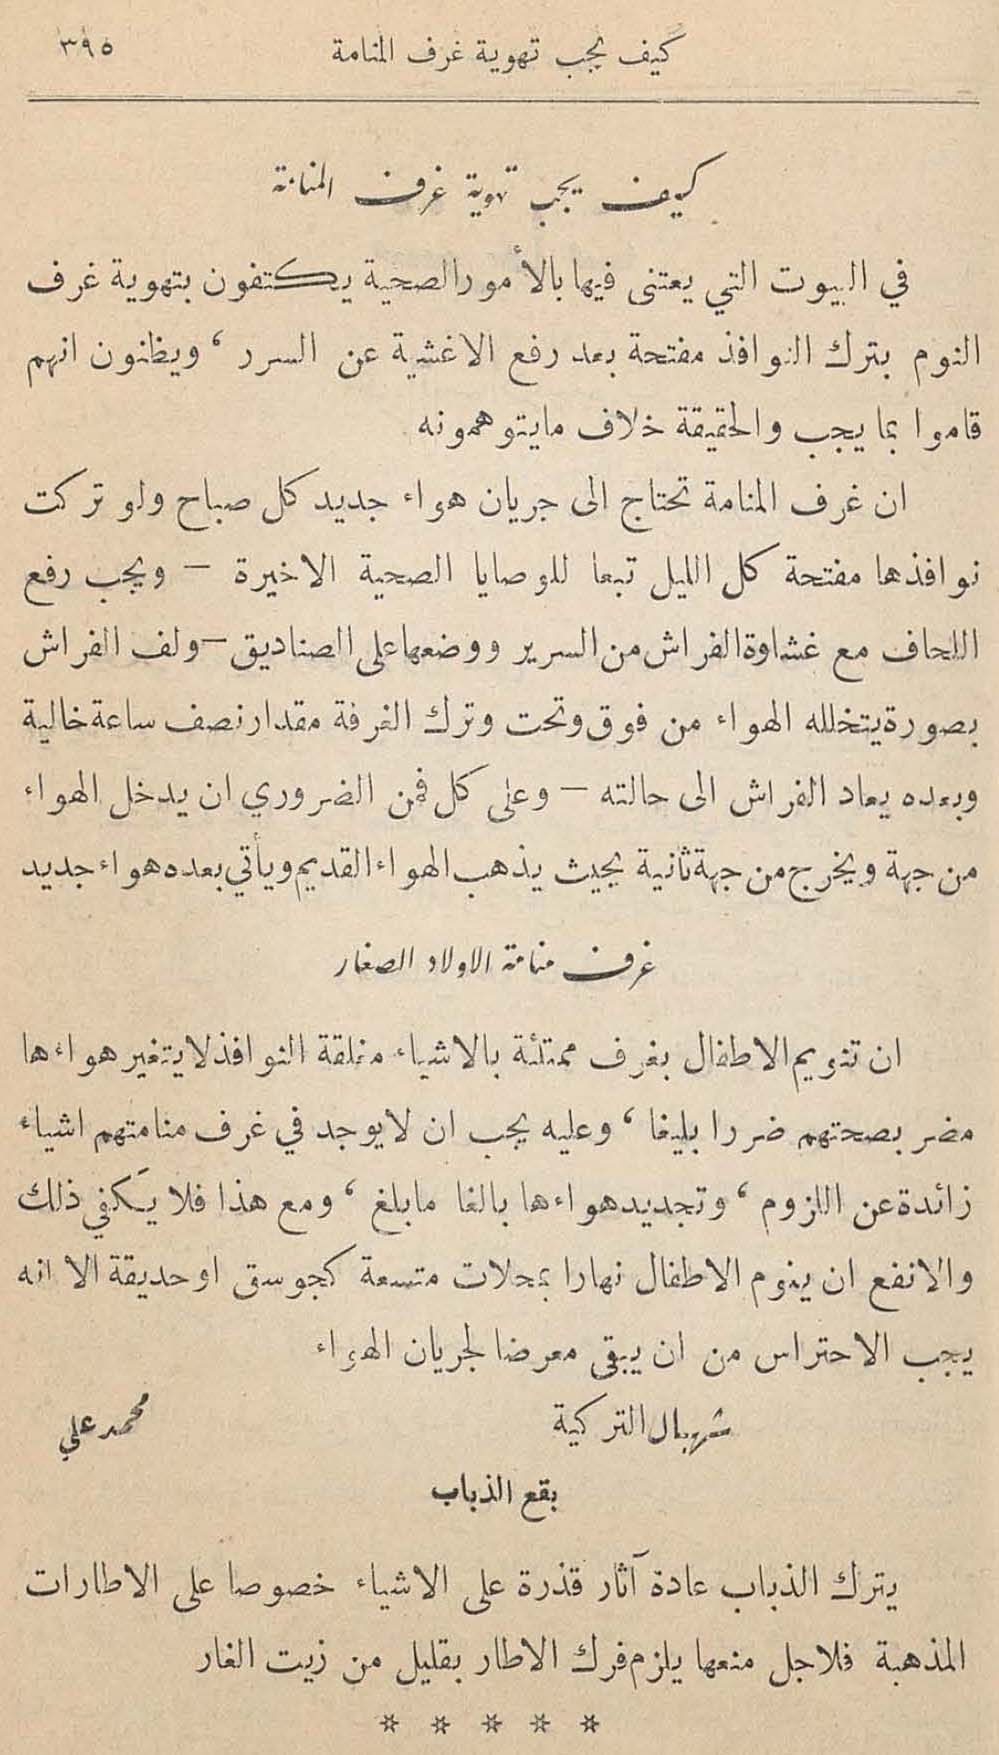 كيف يجب تهوية غرف المنامة ٣٩٥
كيف يجب تهوية غرف المنامة
في البيوت التي يعتنى فيها بالأمور الصحية يكتفون بتهوية غرف
النوم بترك النوافذ مفتحة بعد رفع الاغشية عن السرر ، ويظنون انهم
قاموا بما يجب والحقيقة خلاف مايتوهمونه
ان غرف المنامة تحتاج الى جريان هواء جديد كل صباح ولو تركت
نوافذها مفتحة كل الليل تبعا للوصايا الصحية الاخيرة – ويجب رفع
اللحاف مع غشاوة الفراش من السرير ووضعها على الصناديق – ولف الفراش
بصورة يتخلله الهواء من فوق وتحت وترك الغرفة مقدار نصف ساعة خالية
وبعده يعاد الفراش الى حالته – وعلى كل فمن الضروري ان يدخل الهواء
من جهة ويخرج من جهة ثانية بحيث يذهب الهواء القديم ويأتي بعده هواء جديد
غرف منامة الاولاد الصغار
ان تنويم الاطفال بغرف ممتلئة بالاشياء مغلقة النوافذ لا يتغير هواءها
مضر بصحتهم ضررا بليغا ، وعليه يجب ان لا يوجد في غرف منامتهم اشياء
زائدة عن اللزوم ، وتجديد هواءها بالغا مابلغ ، ومع هذا فلا يكفي ذلك
والانفع ان ينوم الاطفال نهارا بمحلات متسعة كجوسق او حديقة الا انه
يجب الاحتراس من ان يبقى معرضا لجريان الهواء
شهبال التركية محمد علي
بقع الذباب
يترك الذباب عادة آثار قذرة على الاشياء خصوصا على الاطارات
المذهبة فلاجل منعها يلزم فرك الاطار بقليل من زيت الغار
* * * * *